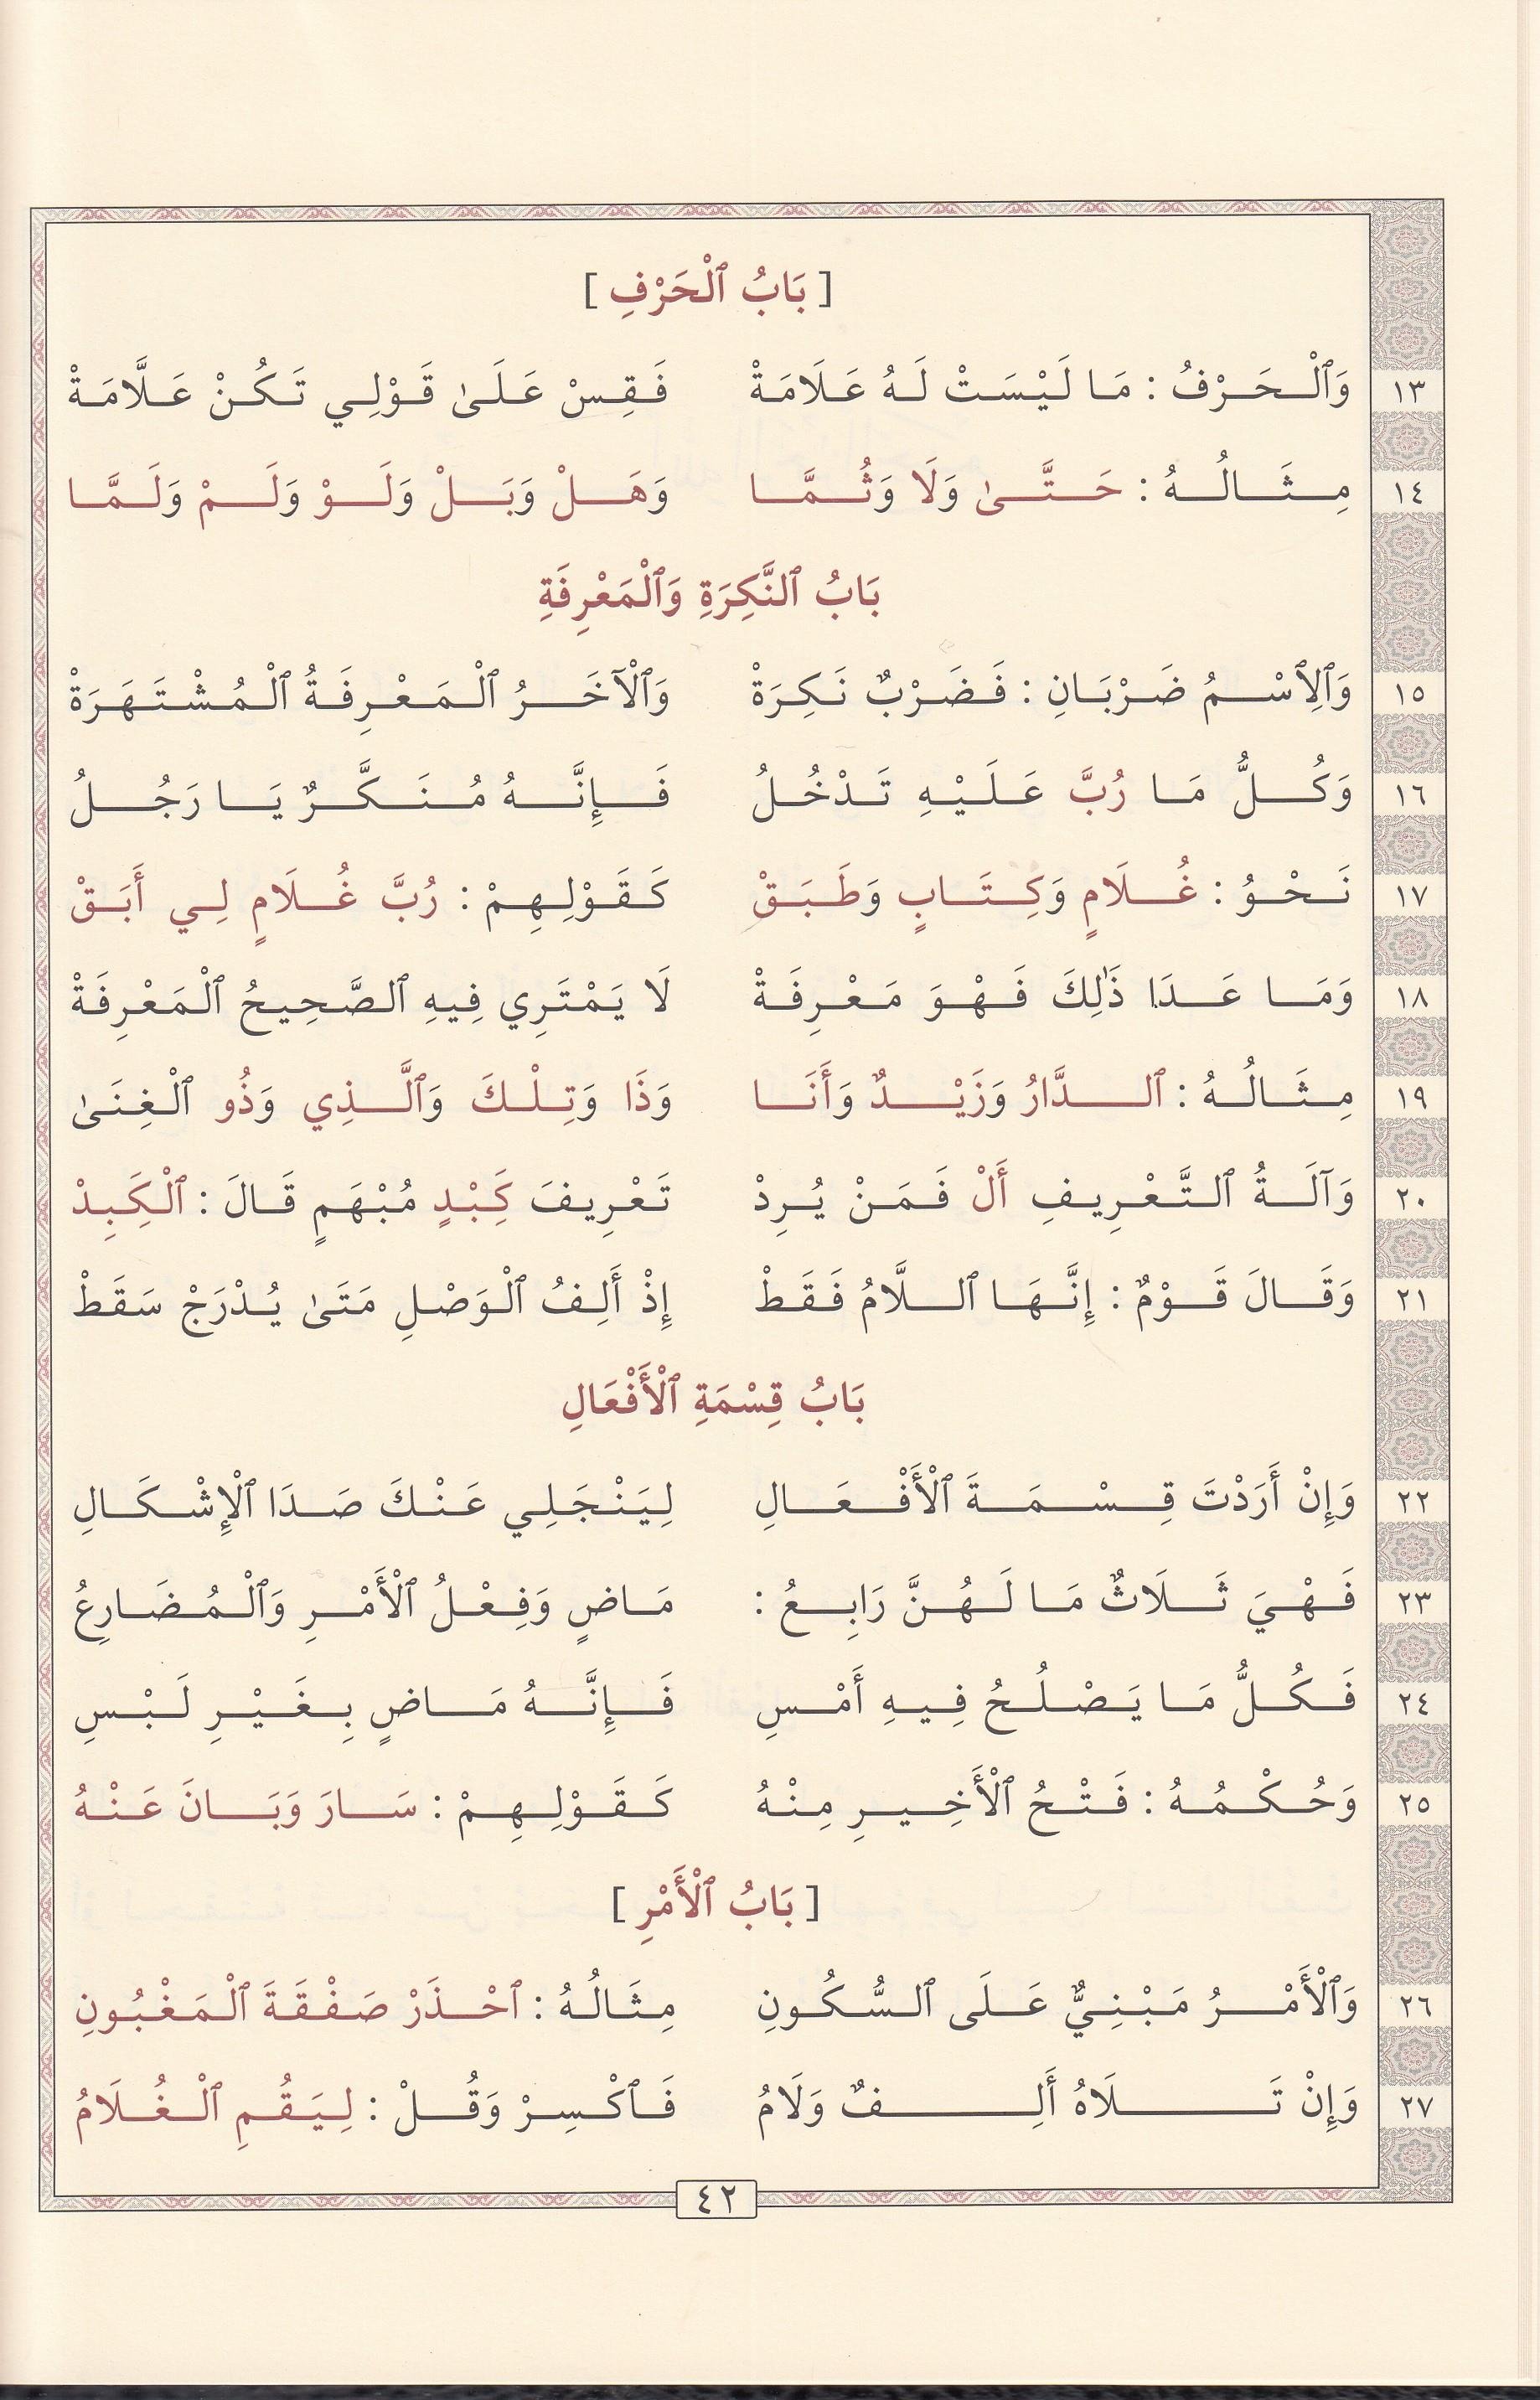 [ بَابُ ٱلْحَرْفِ ]
١٣ وَٱلْحَرْفُ : مَا لَيْسَتْ لَهُ عَلَامَةْ فَقِسْ عَلَىٰ قَوْلِي تَكُنْ عَلَّامَةْ
١٤ مِثَالُهُ : حَتَّىٰ وَلَا وَثُمَّا وَهَلْ وَبَلْ وَلَوْ وَلَمْ وَلَمَّا
بَابُ ٱلنَّكِرَةِ وَٱلْمَعْرِفَةِ
١٥ وَٱلِٱسْمُ ضَرْبَانِ : فَضَرْبٌ نَكِرَةْ وَٱلْآخَرُ ٱلْمَعْرِفَةُ ٱلْمُشْتَهَرَةْ
١٦ وَكُلُّ مَا رُبَّ عَلَيْهِ تَدْخُلُ فَإِنَّهُ مُنَكَّرٌ يَا رَجُلُ
١٧ نَحْوُ : غُلَامٍ وَكِتَابٍ وَطَبَقْ كَقَوْلِهِمْ : رُبَّ غُلَامٍ لِي أَبَقْ
١٨ وَمَا عَدَا ذَٰلِكَ فَهْوَ مَعْرِفَةْ لَا يَمْتَرِي فِيهِ ٱلصَّحِيحُ ٱلْمَعْرِفَةْ
١٩ مِثَالُهُ : ٱلدَّارُ وَزَيْدٌ وَأَنَا وَذَا وَتِلْكَ وَٱلَّذِي وَذُو ٱلْغِنَىٰ
٢٠ وَآلَةُ ٱلتَّعْرِيفِ أَلْ فَمَنْ يُرِدْ تَعْرِيفَ كَبْدٍ مُبْهَمٍ قَالَ : ٱلْكَبِدْ
٢١ وَقَالَ قَوْمٌ : إِنَّهَا ٱللَّامُ فَقَطْ إِذْ أَلِفُ ٱلْوَصْلِ مَتَىٰ يُدْرَجْ سَقَطْ
بَابُ قِسْمَةِ ٱلْأَفْعَالِ
٢٢ وَإِنْ أَرَدْتَ قِسْمَةَ ٱلْأَفْعَالِ لِيَنْجَلِي عَنْكَ صَدَا ٱلْإِشْكَالِ
٢٣ فَهْيَ ثَلَاثٌ مَا لَهُنَّ رَابِعُ : مَاضٍ وَفِعْلُ ٱلْأَمْرِ وَٱلْمُضَارِعُ
٢٤ فَكُلُّ مَا يَصْلُحُ فِيهِ أَمْسِ فَإِنَّهُ مَاضٍ بِغَيْرِ لَبْسِ
٢٥ وَحُكْمُهُ : فَتْحُ ٱلْأَخِيرِ مِنْهُ كَقَوْلِهِمْ : سَارَ وَبَانَ عَنْهُ
[ بَابُ ٱلْأَمْرِ ]
٢٦ وَٱلْأَمْرُ مَبْنِيٌّ عَلَى ٱلسُّكُونِ مِثَالُهُ : ٱحْذَرْ صَفْقَةَ ٱلْمَغْبُونِ
٢٧ وَإِنْ تَلَاهُ أَلِفٌ وَلَامُ فَٱكْسِرْ وَقُلْ : لِيَقُمِ ٱلْغُلَامُ
٤٢